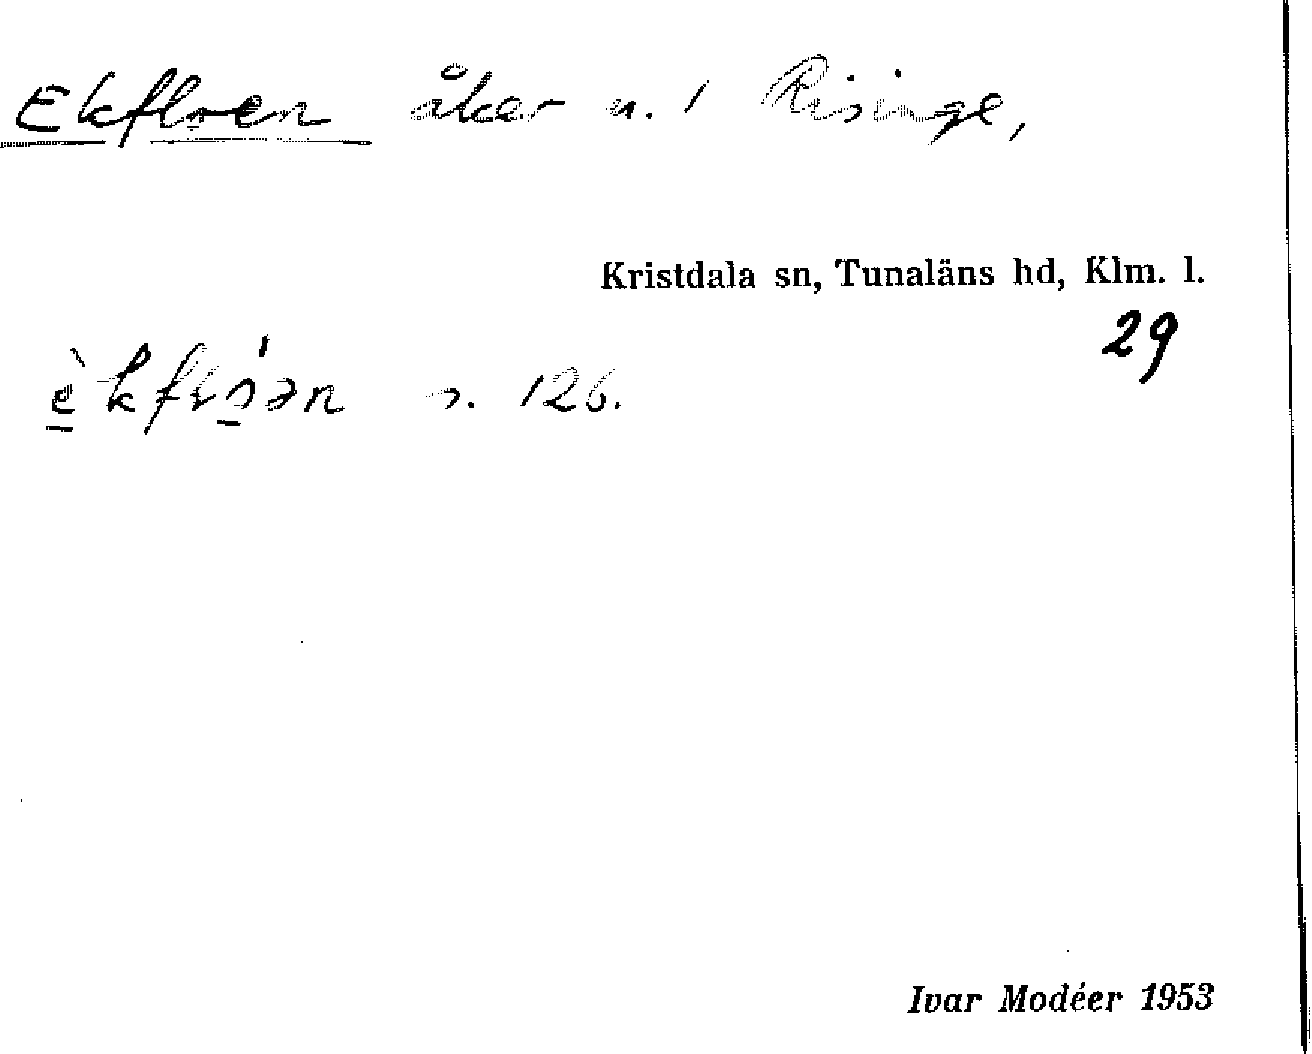 Ekfloen åker n. 1 Risinge,
Kristdala sn, Tunaläns hd, Klm. l.
29
s. 126.
Ivar Modéer 1953